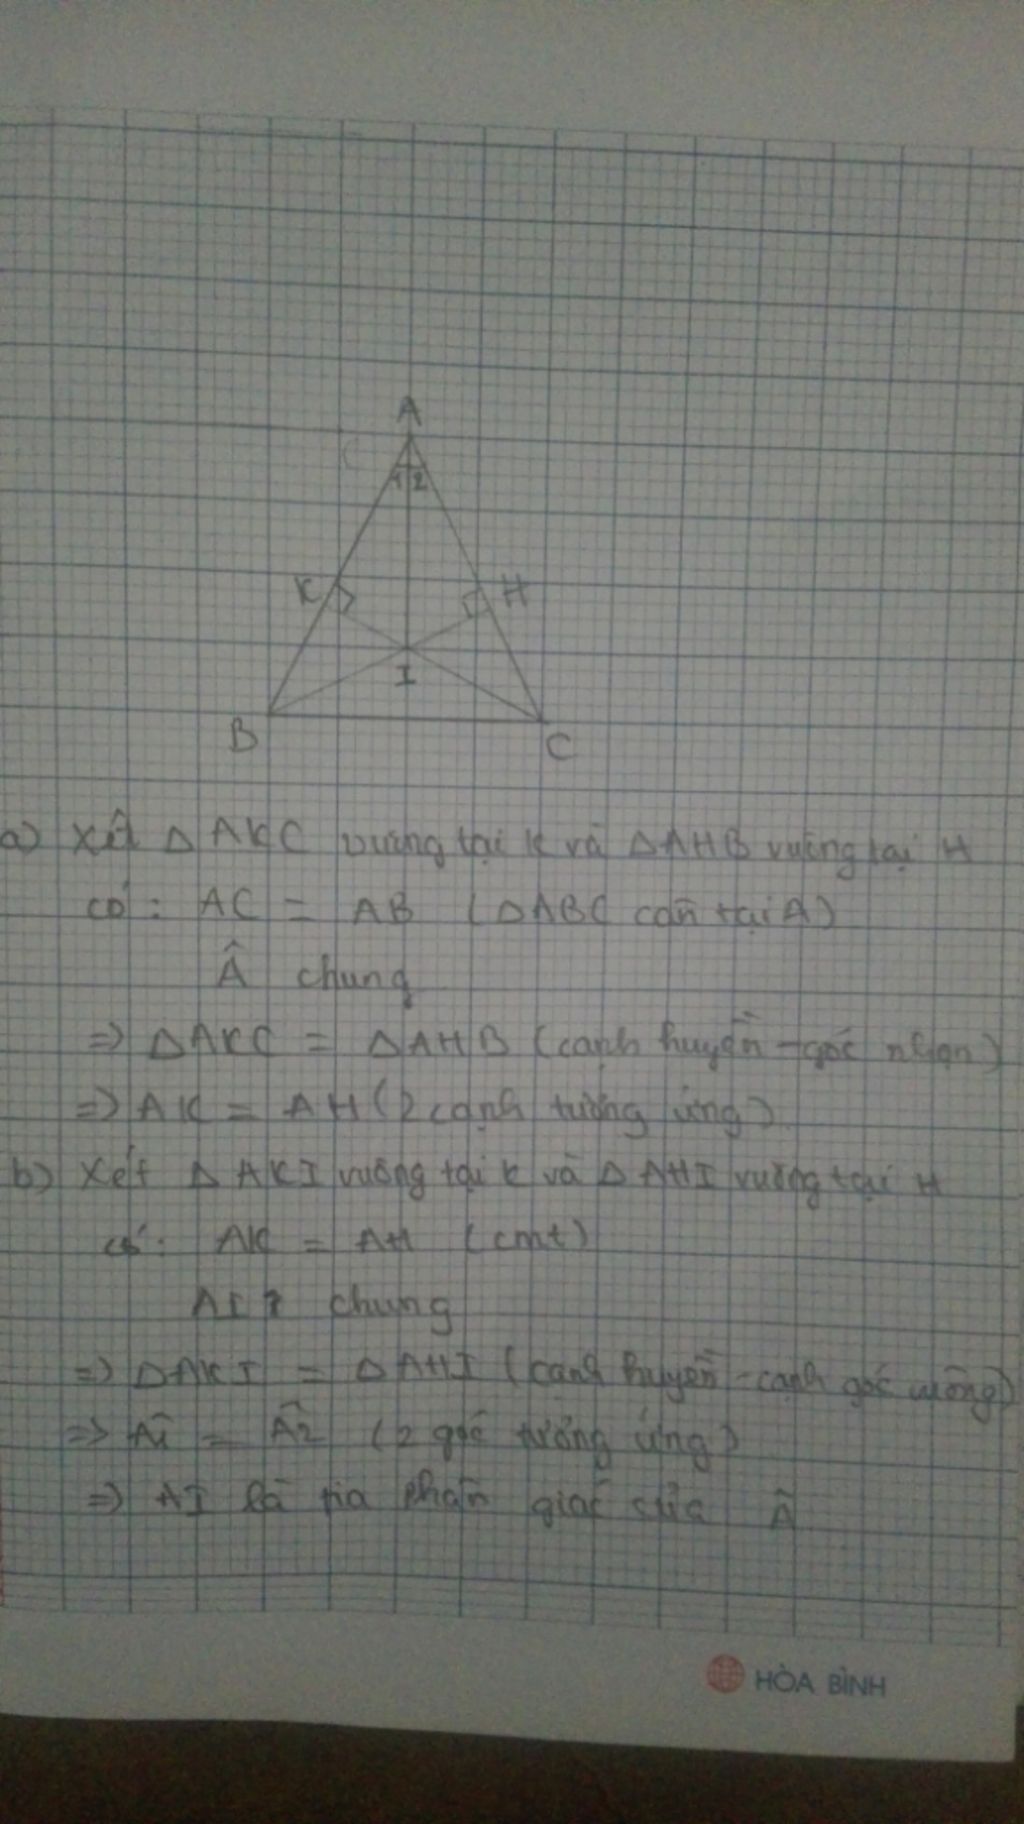 A
1 2
K H
I
B C
a) Xét Δ AKC vuông tại K và ΔAHB vuông tại H
có: AC = AB (ΔABC cân tại A)
Â chung
=> ΔAKC = ΔAHB (cạnh huyền - góc nhọn)
=> AK = AH (2 cạnh tương ứng)
b) Xét Δ AKI vuông tại K và Δ AHI vuông tại H
có: AK = AH (cmt)
AI chung
=> ΔAKI = ΔAHI (cạnh huyền - cạnh góc vuông)
=> Â1 = Â2 (2 góc tương ứng)
=> AI là tia phân giác của Â
HÒA BÌNH